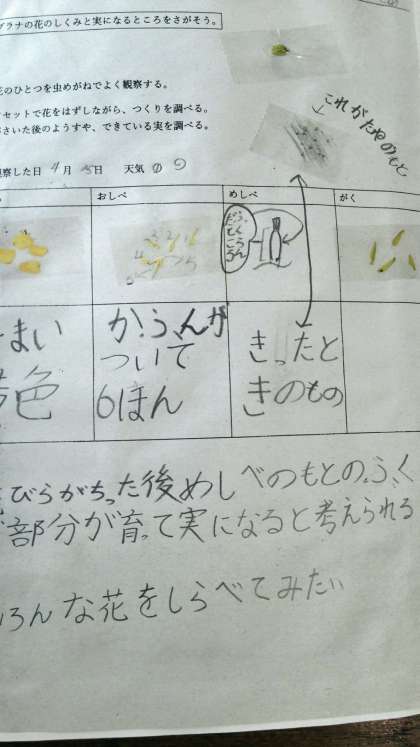 ブラナの花のしくみと実になるところをさがそう。
花のひとつを虫めがねでよく観察する。
セットで花をはずしながら、つくりを調べる。
さいた後のようすや、できている実を調べる。
これがたねのもと
察した日 4月 5日 天気
おしべ
めしべ
がく
まい
色
かふんが
ついて
6ほん
きったと
きのもの
びらがちった後めしべのもとのふく
部分が育って実になると考えられる
ろんな花をしらべてみたい